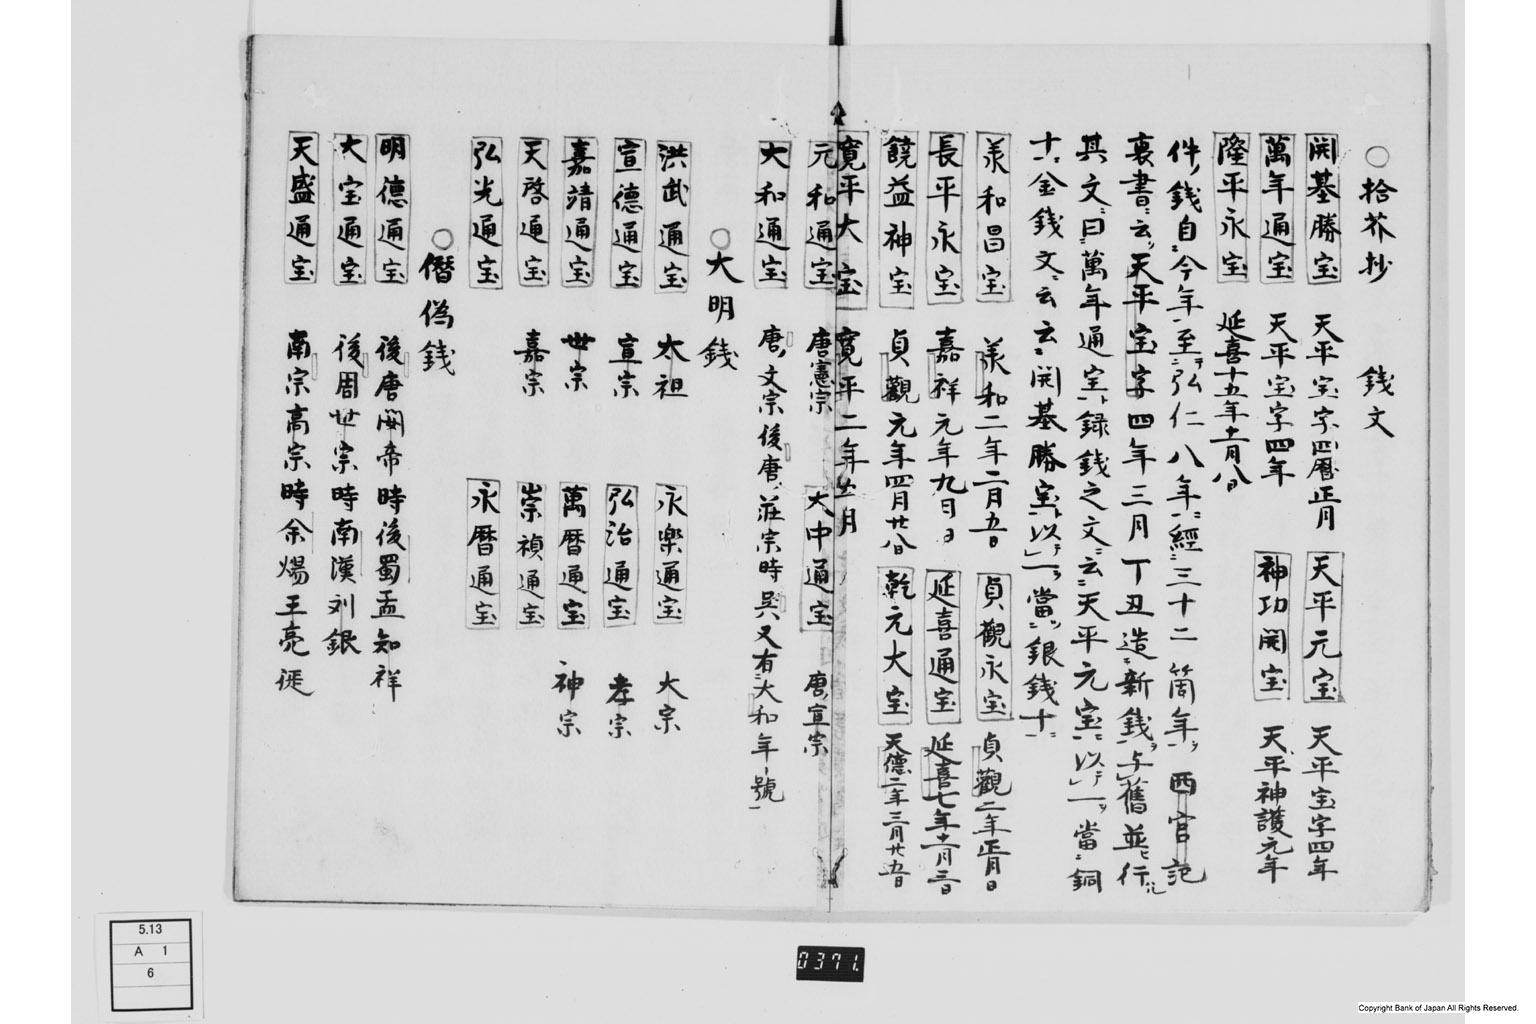 ○拾芥抄　銭文
開基勝宝　天平宝字四暦正月　天平元宝　天平宝字四年
萬年通宝　天平宝字四年　神功開宝　天平神護元年
隆平永宝　延喜十五年十一月八日
件ノ銭自今年至弘仁八年経三十二箇年　西官記
裏書云天平宝字四年三月丁丑造新銭与舊並行
其文曰萬年通宝録銭之文云天平元宝以一當銅
十金銭文云云開基勝宝以一當銀銭十
承和昌宝　承和二年二月五日　貞觀永宝　貞觀二年正月日
長平永宝　嘉祥元年九月日　延喜通宝　延喜七年十一月三日
饒益神宝　貞觀元年四月廿八日　乾元大宝　天德二年三月廿五日
寛平大宝　寛平二年　月
元和通宝　唐憲宗　大中通宝　唐宣宗
大和通宝　唐文宗後唐莊宗時呉又有大和年号號
○大明銭
洪武通宝　太祖　永楽通宝　大宗
宣德通宝　宣宗　弘治通宝　孝宗
嘉靖通宝　世宗　萬暦通宝　神宗
天啓通宝　嘉宗　崇禎通宝
弘光通宝　永暦通宝
○僭偽銭
明德通宝　後唐閔帝時後蜀孟知祥
大宝通宝　後周世宗時南漢刘銀
天盛通宝　南宗高宗時余煬王亮徙
0371.
5.13
A 1
6
Copyright Bank of Japan All Rights Reserved.